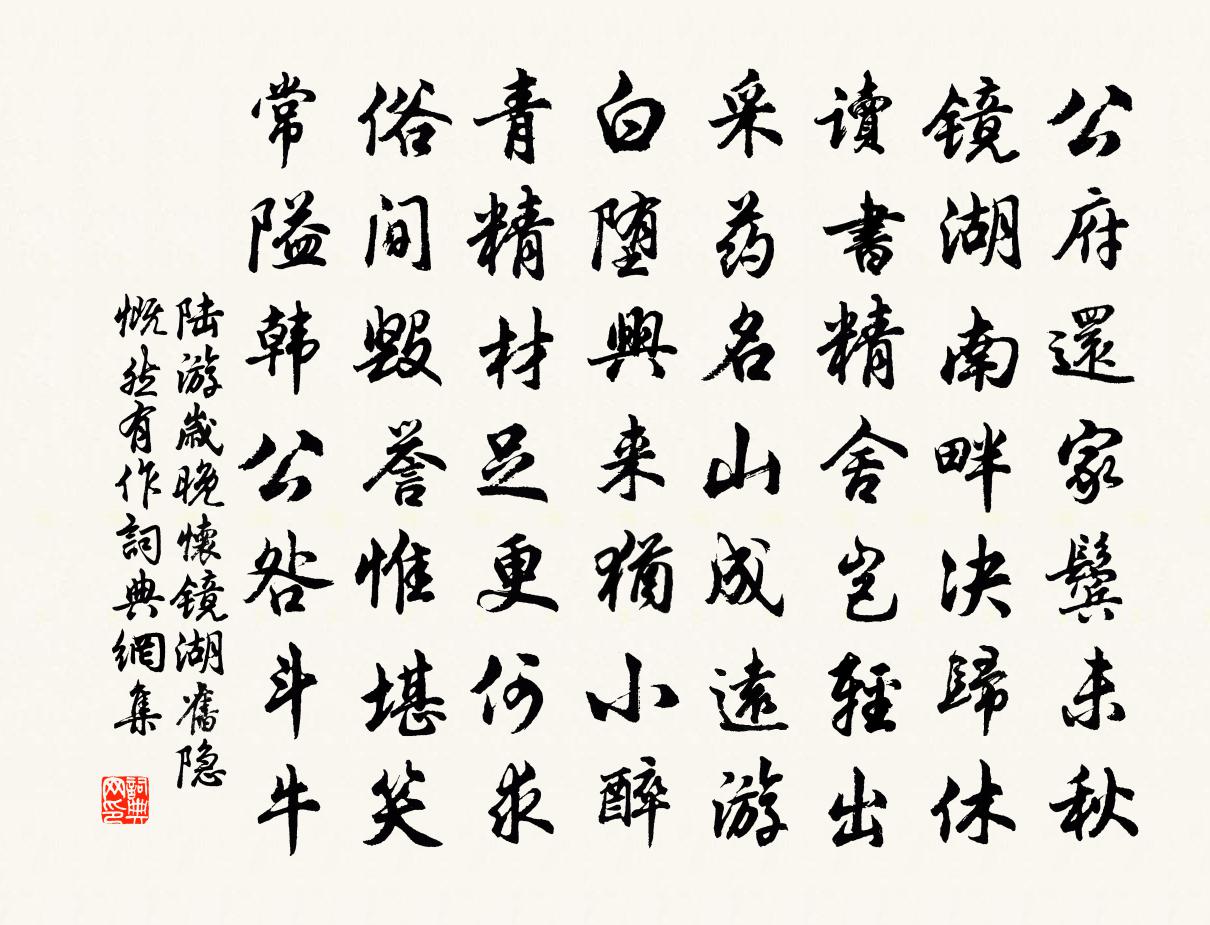 公府還家鬓未秋
镜湖南畔决歸休
讀書精舍岂輕出
采药名山成遠游
白堕興来猶小醉
青精材足更何求
俗间毁誉惟堪笑
常隘韩公咎斗牛
陆游歲晚懷镜湖舊隐
慨然有作詞典網集
詞典网印